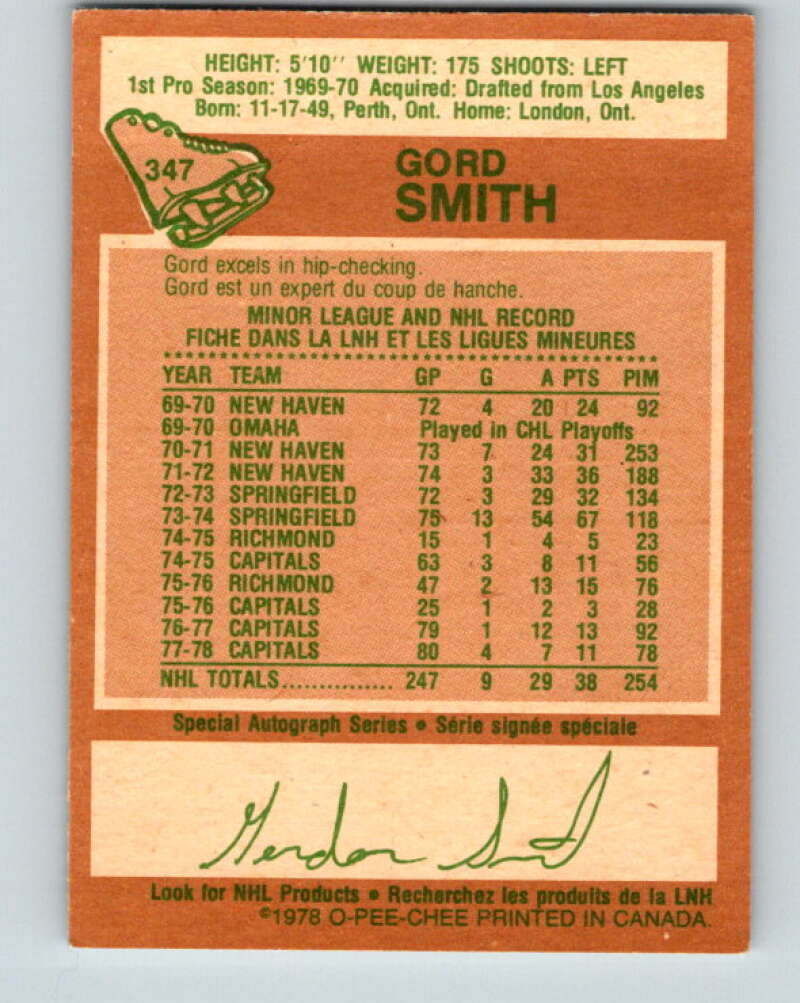 HEIGHT: 5'10'' WEIGHT: 175 SHOOTS: LEFT
1st Pro Season: 1969-70 Acquired: Drafted from Los Angeles
Born: 11-17-49, Perth, Ont. Home: London, Ont.
347
GORD
SMITH
Gord excels in hip-checking.
Gord est un expert du coup de hanche.
MINOR LEAGUE AND NHL RECORD
FICHE DANS LA LNH ET LES LIGUES MINEURES
YEAR TEAM GP G A PTS PIM
69-70 NEW HAVEN 72 4 20 24 92
69-70 OMAHA Played in CHL Playoffs
70-71 NEW HAVEN 73 7 24 31 253
71-72 NEW HAVEN 74 3 33 36 188
72-73 SPRINGFIELD 72 3 29 32 134
73-74 SPRINGFIELD 75 13 54 67 118
74-75 RICHMOND 15 1 4 5 23
74-75 CAPITALS 63 3 8 11 56
75-76 RICHMOND 47 2 13 15 76
75-76 CAPITALS 25 1 2 3 28
76-77 CAPITALS 79 1 12 13 92
77-78 CAPITALS 80 4 7 11 78
NHL TOTALS............... 247 9 29 38 254
Special Autograph Series • Série signée spéciale
Gordon Smith
Look for NHL Products • Recherchez les produits de la LNH
©1978 O-PEE-CHEE PRINTED IN CANADA.